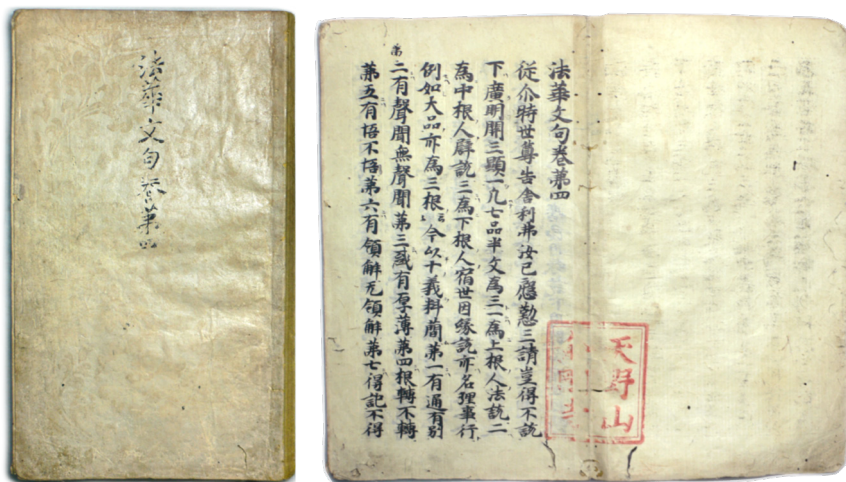 法華文句卷第四
法華文句卷第四
從尒時世尊告舍利弗汝已慇懃三請豈得不說
下廣明開三顯一凡七品半文為三一為上根人法說二
為中根人譬說三為下根人宿世因緣說亦名理事行
例如大品亦為三根今以十義料蕳第一有通有別
第
二有聲聞無聲聞第三惑有厚薄第四根轉不轉
第五有悟不悟第六有領解无領解第七得記不得
天野山